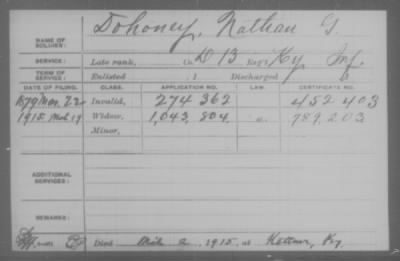 Dohoney, Nathan G.
NAME OF SOLDIER:
SERVICE: Late rank, Co. D 13 Reg't Ky Inf.
TERM OF SERVICE: Enlisted , 1 Discharged , 1
DATE OF FILING. CLASS. APPLICATION NO. LAW. CERTIFICATE NO.
1879 Mar. 22 Invalid, 274 362 452 403
1915 Mch 19 Widow, 1,043,804 789,203
Minor,
ADDITIONAL SERVICES:
REMARKS:
Died Mch 2, 1915, at Ky.